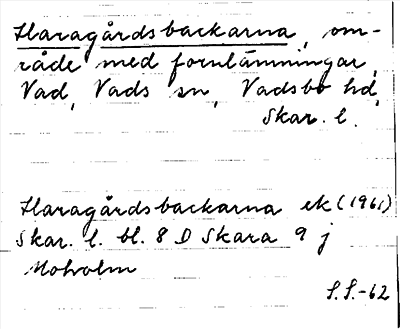 Haragårdsbackarna, om-
råde med fornlämningar,
Vad, Vads sn, Vadsbo hd,
Skar. l.
Haragårdsbackarna ek (1961)
Skar. l. bl. 8 D Skara 9 j
Moholm
S.S.-62